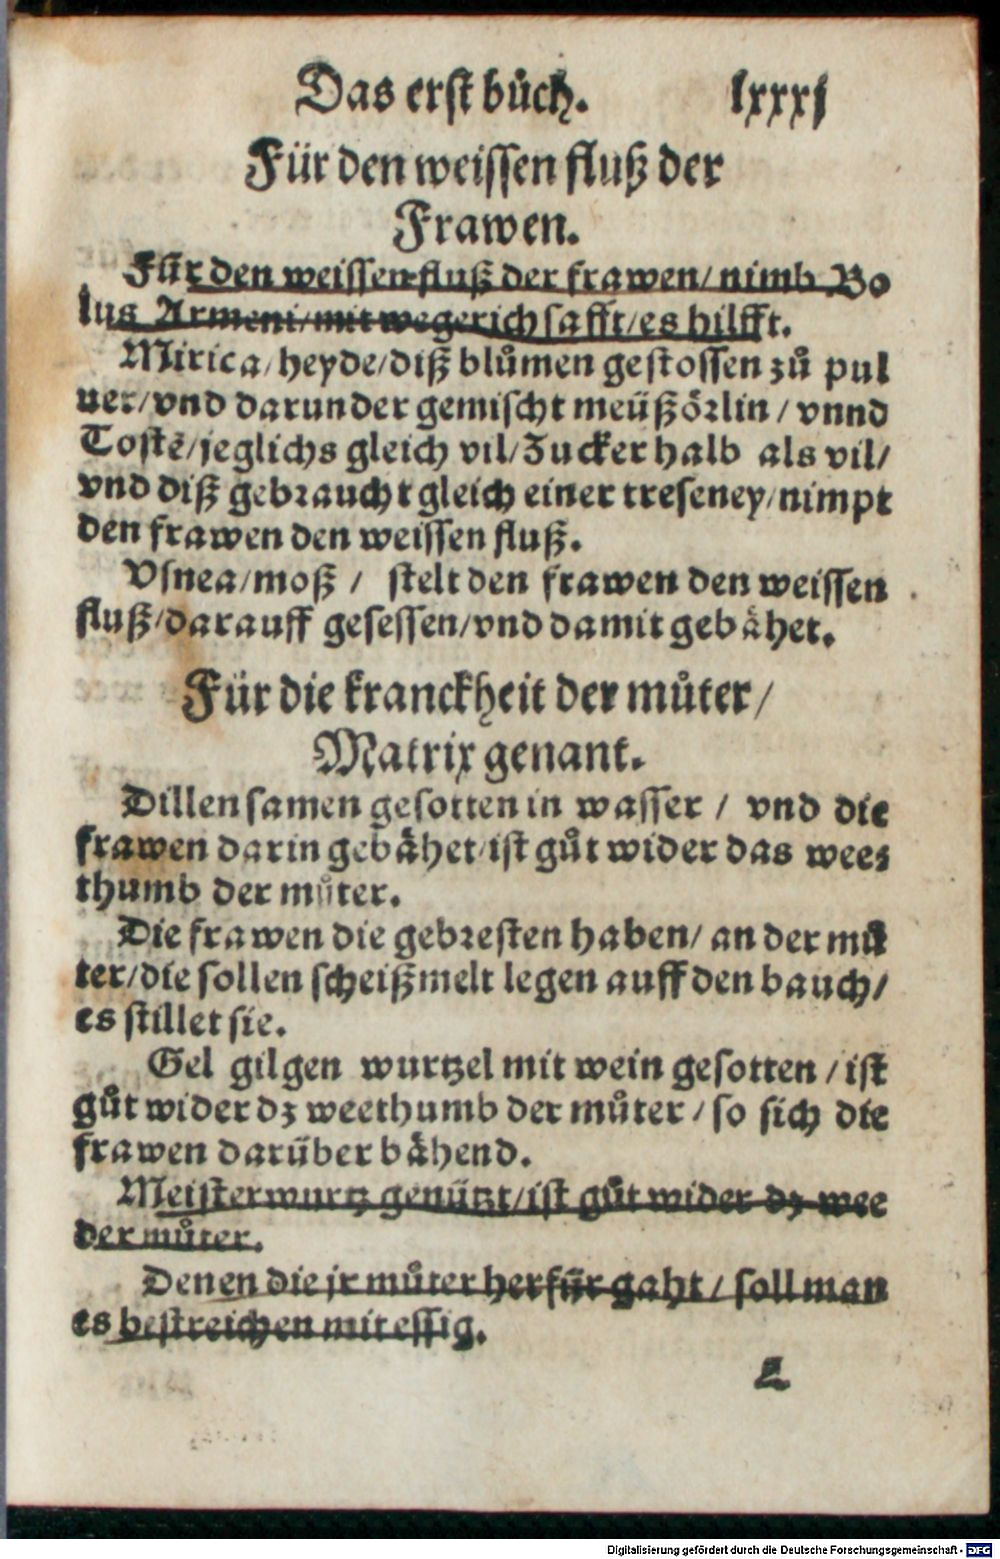 Das erst bůch. lxxxj
Für den weissen fluß der
Frawen.
Für den weissen fluß der frawen/ nimb Bo
lus Armeni/ mit wegerich safft/ es hilfft.
Mirica/ heyde/ diß blůmen gestossen zů pul
uer/ vnd darunder gemischt meüßörlin / vnnd
Tostē/ jeglichs gleich vil/ Zucker halb als vil/
vnd diß gebraucht gleich einer treseney/ nimpt
den frawen den weissen fluß.
Vsnea/ moß / stelt den frawen den weissen
fluß/ darauff gesessen/ vnd damit gebåhet.
Für die kranckheit der můter/
Matrix genant.
Dillen samen gesotten in wasser / vnd die
frawen darin gebåhet/ ist gůt wider das wee⸗
thumb der můter.
Die frawen die gebresten haben/ an der mů
ter/ die sollen scheißmelt legen auff den bauch/
es stillet sie.
Gel gilgen wurtzel mit wein gesotten / ist
gůt wider dz weethumb der můter / so sich die
frawen darüber båhend.
Meisterwurtz genützt/ ist gůt wider dz wee
der můter.
Denen die jr můter herfür gaht / soll man
es bestreichen mit essig.
L
Digitalisierung gefördert durch die Deutsche Forschungsgemeinschaft - DFG